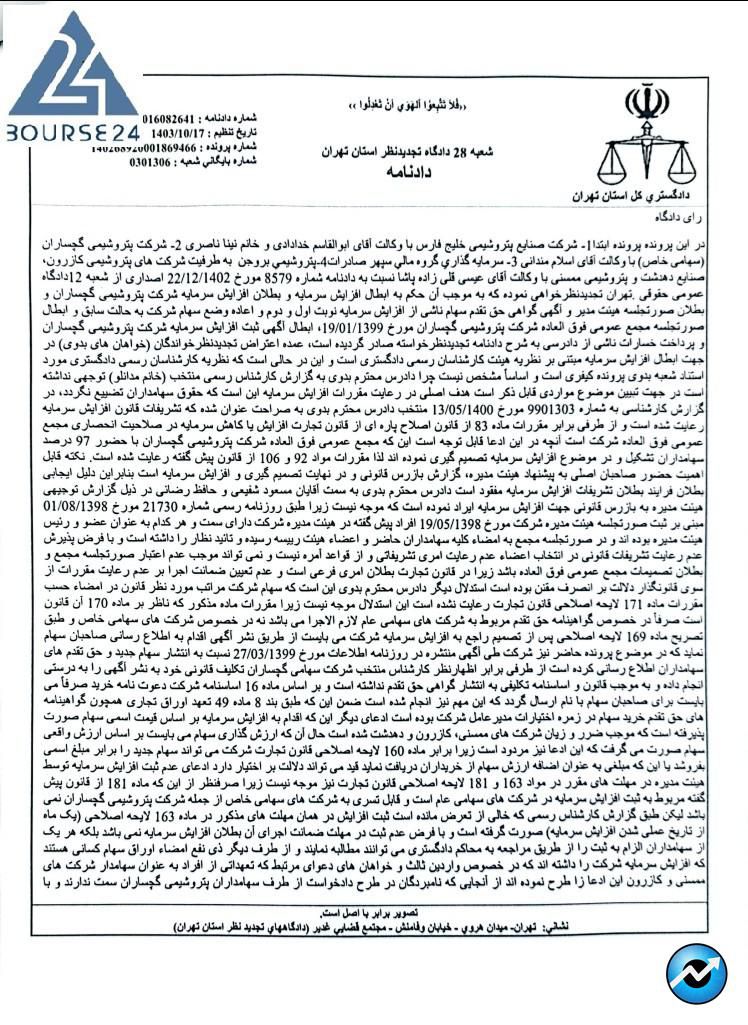 24
BOURSE24
((فَلاَ تَتَّبِعُوا الْهَوَي أَنْ تَعْدِلُوا))
شماره دادنامه : 016082641
تاریخ تنظیم : 1403/10/17
شماره پرونده : 140268920001869466
شماره بایگانی شعبه : 0301306
شعبه 28 دادگاه تجدیدنظر استان تهران
دادنامه
دادگستري کل استان تهران
رای دادگاه
در این پرونده پرونده ابتدا1- شرکت صنایع پتروشیمی خلیج فارس با وکالت آقای ابوالقاسم خدادادی و خانم نینا ناصری 2- شرکت پتروشیمی گچساران
(سهامی خاص) با وکالت آقای اسلام مندانی 3- سرمایه گذاري گروه مالي سپهر صادرات4-پتروشیمي بروجن به طرفیت شرکت هاي پتروشیمي کازرون،
صنایع دهدشت و پتروشیمی ممسنی با وکالت آقای عیسی قلی زاده پاشا نسبت به دادنامه شماره 8579 مورخ 22/12/1402 اصداری از شعبه 12دادگاه
عمومی حقوقی .تهران تجدیدنظرخواهی نموده که به موجب آن حکم به ابطال افزایش سرمایه و بطلان افزایش سرمایه شرکت پتروشیمی گچساران و
بطلان صورتجلسه هیئت مدیر و آگهی گواهی حق تقدم سهام ناشی از افزایش سرمایه نوبت اول و دوم و اعاده وضع سهام شرکت به حالت سابق و ابطال
صورتجلسه مجمع عمومی فوق العاده شرکت پتروشیمی گچساران مورخ 19/01/1399، ابطال آگهی ثبت افزایش سرمایه شرکت پتروشیمی گچساران
و پرداخت خسارات ناشی از دادرسی به شرح دادنامه تجدیدنظرخواسته صادر گردیده است، عمده اعتراض تجدیدنظرخواندگان (خواهان های بدوی) در
جهت ابطال افزایش سرمایه مبتنی بر نظریه هیئت کارشناسان رسمی دادگستری است و این در حالی است که نظریه کارشناسان رسمی دادگستری مورد
استناد شعبه بدوی پرونده کیفری است و اساساً مشخص نیست چرا دادرس محترم بدوی به گزارش کارشناس رسمی منتخب (خانم مدانلو) توجهی نداشته
است در جهت تبیین موضوع مواردی قابل ذکر است هدف اصلی در رعایت مقررات افزایش سرمایه این است که حقوق سهامداران تضییع نگردد، در
گزارش کارشناسی به شماره 9901303 مورخ 13/05/1400 منتخب دادرس محترم بدوی به صراحت عنوان شده که تشریفات قانون افزایش سرمایه
رعایت شده است و از طرفی برابر مقررات ماده 83 از قانون اصلاح پاره ای از قانون تجارت افزایش یا کاهش سرمایه در صلاحیت انحصاری مجمع
عمومی فوق العاده شرکت است آنچه در این ادعا قابل توجه است این که مجمع عمومی فوق العاده شرکت پتروشیمی گچساران با حضور 97 درصد
سهامداران تشکیل و در موضوع افزایش سرمایه تصمیم گیری نموده اند لذا مقررات مواد 92 و 106 از قانون پیش گفته رعایت شده است. نکته قابل
اهمیت حضور صاحبان اصلی به پیشنهاد هیئت مدیره، گزارش بازرس قانونی و در نهایت تصمیم گیری و افزایش سرمایه است بنابراین دلیل ایجابی
بطلان فرایند بطلان تشریفات افزایش سرمایه مفقود است دادرس محترم بدوی به سمت آقایان مسعود شفیعی و حافظ رضائی در ذیل گزارش توجیهی
هیئت مدیره به بازرس قانونی جهت افزایش سرمایه ایراد نموده است که موجه نیست زیرا طبق روزنامه رسمی شماره 21730 مورخ 01/08/1398
مبنی بر ثبت صورتجلسه هیئت مدیره شرکت مورخ 19/05/1398 افراد پیش گفته در هیئت مدیره شرکت دارای سمت و هر کدام به عنوان عضو و رئیس
هیئت مدیره بوده اند و در صورتجلسه مجمع به امضاء کلیه سهامداران حاضر و اعضاء هیئت رییسه رسیده و تائید نظار را داشته است و با فرض پذیرش
عدم رعایت تشریفات قانونی در انتخاب اعضاء عدم رعایت امری تشریفاتی و از قواعد آمره نیست و نمی تواند موجب عدم اعتبار صورتجلسه مجمع و
بطلان تصمیمات مجمع عمومی فوق العاده باشد زیرا در قانون تجارت بطلان امری فرعی است و عدم تعیین ضمانت اجرا بر عدم رعایت مقررات از
سوی قانونگذار دلالت بر انصرف مقنن بوده است استدلال دیگر دادرس محترم بدوی این است که سهام شرکت مراتب مورد نظر قانون در امضاء حسب
مقررات ماده 171 لایحه اصلاحی قانون تجارت رعایت نشده است این استدلال موجه نیست زیرا مقررات ماده مذکور که ناظر بر ماده 170 آن قانون
است صرفاً در خصوص گواهینامه حق تقدم مربوط به شرکت های سهامی عام لازم الاجرا می باشد نه در خصوص شرکت های سهامی خاص و طبق
تصریح ماده 169 لایحه اصلاحی پس از تصمیم راجع به افزایش سرمایه شرکت می بایست از طریق نشر آگهی اقدام به اطلاع رسانی صاحبان سهام
نماید که در موضوع پرونده حاضر نیز شرکت طی آگهی منتشره در روزنامه اطلاعات مورخ 27/03/1399 نسبت به انتشار سهام جدید و حق تقدم های
سهامداران اطلاع رسانی کرده است از طرفی برابر اظهارنظر کارشناس منتخب شرکت سهامی گچساران تکلیف قانونی خود به نشر آگهی را به درستی
انجام داده و به موجب قانون و اساسنامه تکلیفی به انتشار گواهی حق تقدم نداشته است و بر اساس ماده 16 اساسنامه شرکت دعوت نامه خرید صرفاً می
بایست برای صاحبان سهام با نام ارسال گردد که این مهم نیز انجام شده است ضمن این که طبق بند 8 ماده 49 تعهد اوراق تجاری همچون گواهینامه
های حق تقدم خرید سهام در زمره اختیارات مدیرعامل شرکت بوده است ادعای دیگر این که اقدام به افزایش سرمایه بر اساس قیمت اسمی سهام صورت
پذیرفته است که موجب ضرر و زیان شرکت های ممسنی، کازرون و دهدشت شده است حال آن که ارزش گذاری سهام می بایست بر اساس ارزش واقعی
سهام صورت می گرفت که این ادعا نیز مردود است زیرا برابر ماده 160 لایحه اصلاحی قانون تجارت شرکت می تواند سهام جدید را برابر مبلغ اسمی
بفروشد یا این که مبلغی به عنوان اضافه ارزش سهام از خریداران دریافت نماید قید می تواند دلالت بر اختیار دارد ادعای عدم ثبت افزایش سرمایه توسط
هیئت مدیره در مهلت های مقرر در مواد 163 و 181 لایحه اصلاحی قانون تجارت نیز موجه نیست زیرا صرفنظر از این که ماده 181 از قانون پیش
گفته مربوط به ثبت افزایش سرمایه در شرکت های سهامی عام است و قابل تسری به شرکت های سهامی خاص از جمله شرکت پتروشیمی گچساران نمی
باشد لیکن طبق گزارش کارشناس رسمی که خالی از تعرض مانده است ثبت افزایش در همان مهلت های مذکور در ماده 163 لایحه اصلاحی (یک ماه
از تاریخ عملی شدن افزایش سرمایه) صورت گرفته است و با فرض عدم ثبت در مهلت ضمانت اجرای آن بطلان افزایش سرمایه نمی باشد بلکه هر یک
از سهامداران الزام به ثبت را از طریق مراجعه به محاکم دادگستری می توانند مطالبه نمایند و از طرف دیگر ذی نفع امضاء اوراق سهام کسانی هستند
که افزایش سرمایه شرکت را داشته اند که در خصوص واردین ثالث و خواهان های دعوای مرتبط که تعهداتی از افراد به عنوان سهامدار شرکت های
ممسنی و کازرون این ادعا زا طرح نموده اند از آنجایی که نامبردگان در طرح دادخواست از طرف سهامداران پتروشیمی گچساران سمت ندارند و با
تصویر برابر با اصل است.
نشانی: تهران- میدان هروي - خیابان وفامنش - مجتمع قضایي غدیر (دادگاههاي تجدید نظر استان تهران)